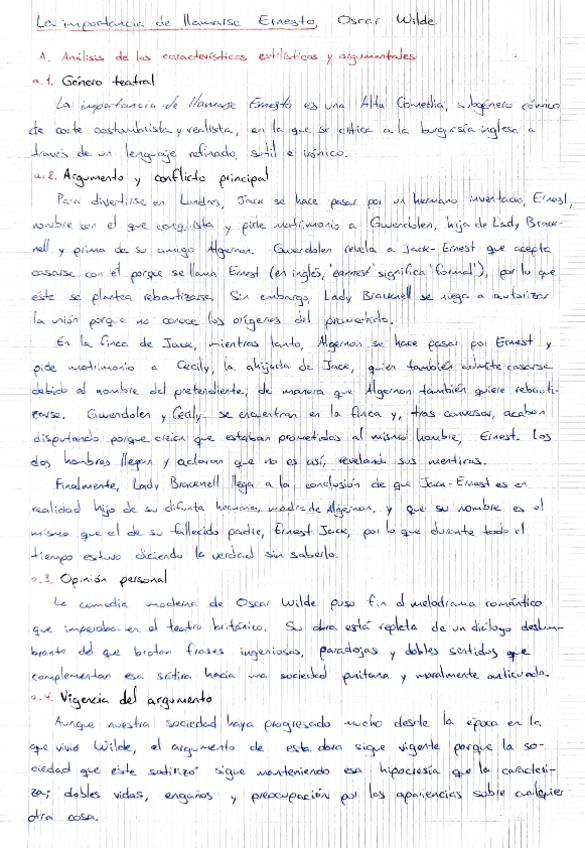 La importancia de llamarse Ernesto, Oscar Wilde
A. Análisis de las características estilísticas y argumentales
a.1. Género teatral
La importancia de llamarse Ernesto es una Alta Comedia, subgénero cómico
de corte costumbrista y realista, en la que se critica a la burguesía inglesa a
través de un lenguaje refinado, sutil e irónico.
a.2. Argumento y conflicto principal
Para divertirse en Londres, Jack se hace pasar por un hermano inventado, Ernest,
nombre con el que conquista y pide matrimonio a Gwendolen, hija de Lady Brack-
nell y prima de su amigo Algernon. Gwendolen revela a Jack-Ernest que acepta
casarse con él porque se llama Ernest (en inglés, 'earnest' significa 'formal'), por lo que
éste se plantea rebautizarse. Sin embargo, Lady Bracknell se niega a autorizar
la unión porque no conoce los orígenes del prometido.
En la finca de Jack, mientras tanto, Algernon se hace pasar por Ernest y
pide matrimonio a Cecily, la ahijada de Jack, quien también admite casarse
debido al nombre del pretendiente, de manera que Algernon también quiere rebauti-
zarse. Gwendolen y Cecily se encuentran en la finca y, tras conversar, acaban
disputando porque creían que estaban prometidas al mismo hombre, Ernest. Los
dos hombres llegan y aclaran que no es así, revelando sus mentiras.
Finalmente, Lady Bracknell llega a la conclusión de que Jack-Ernest es en
realidad hijo de su difunta hermana, madre de Algernon, y que su nombre es el
mismo que el de su fallecido padre, Ernest Jack, por lo que durante todo el
tiempo estuvo diciendo la verdad sin saberlo.
a.3. Opinión personal
La comedia moderna de Oscar Wilde puso fin al melodrama romántico
que imperaba en el teatro británico. Su obra está repleta de un diálogo deslum-
brante del que brotan frases ingeniosas, paradojas y dobles sentidos que
complementan esa sátira hacia una sociedad puritana y moralmente anticuada.
a.4. Vigencia del argumento
Aunque nuestra sociedad haya progresado mucho desde la época en la
que vivió Wilde, el argumento de esta obra sigue vigente porque la so-
ciedad que éste satirizó sigue manteniendo esa hipocresía que la caracteri-
za; dobles vidas, engaños y preocupación por las apariencias sobre cualquier
otra cosa.